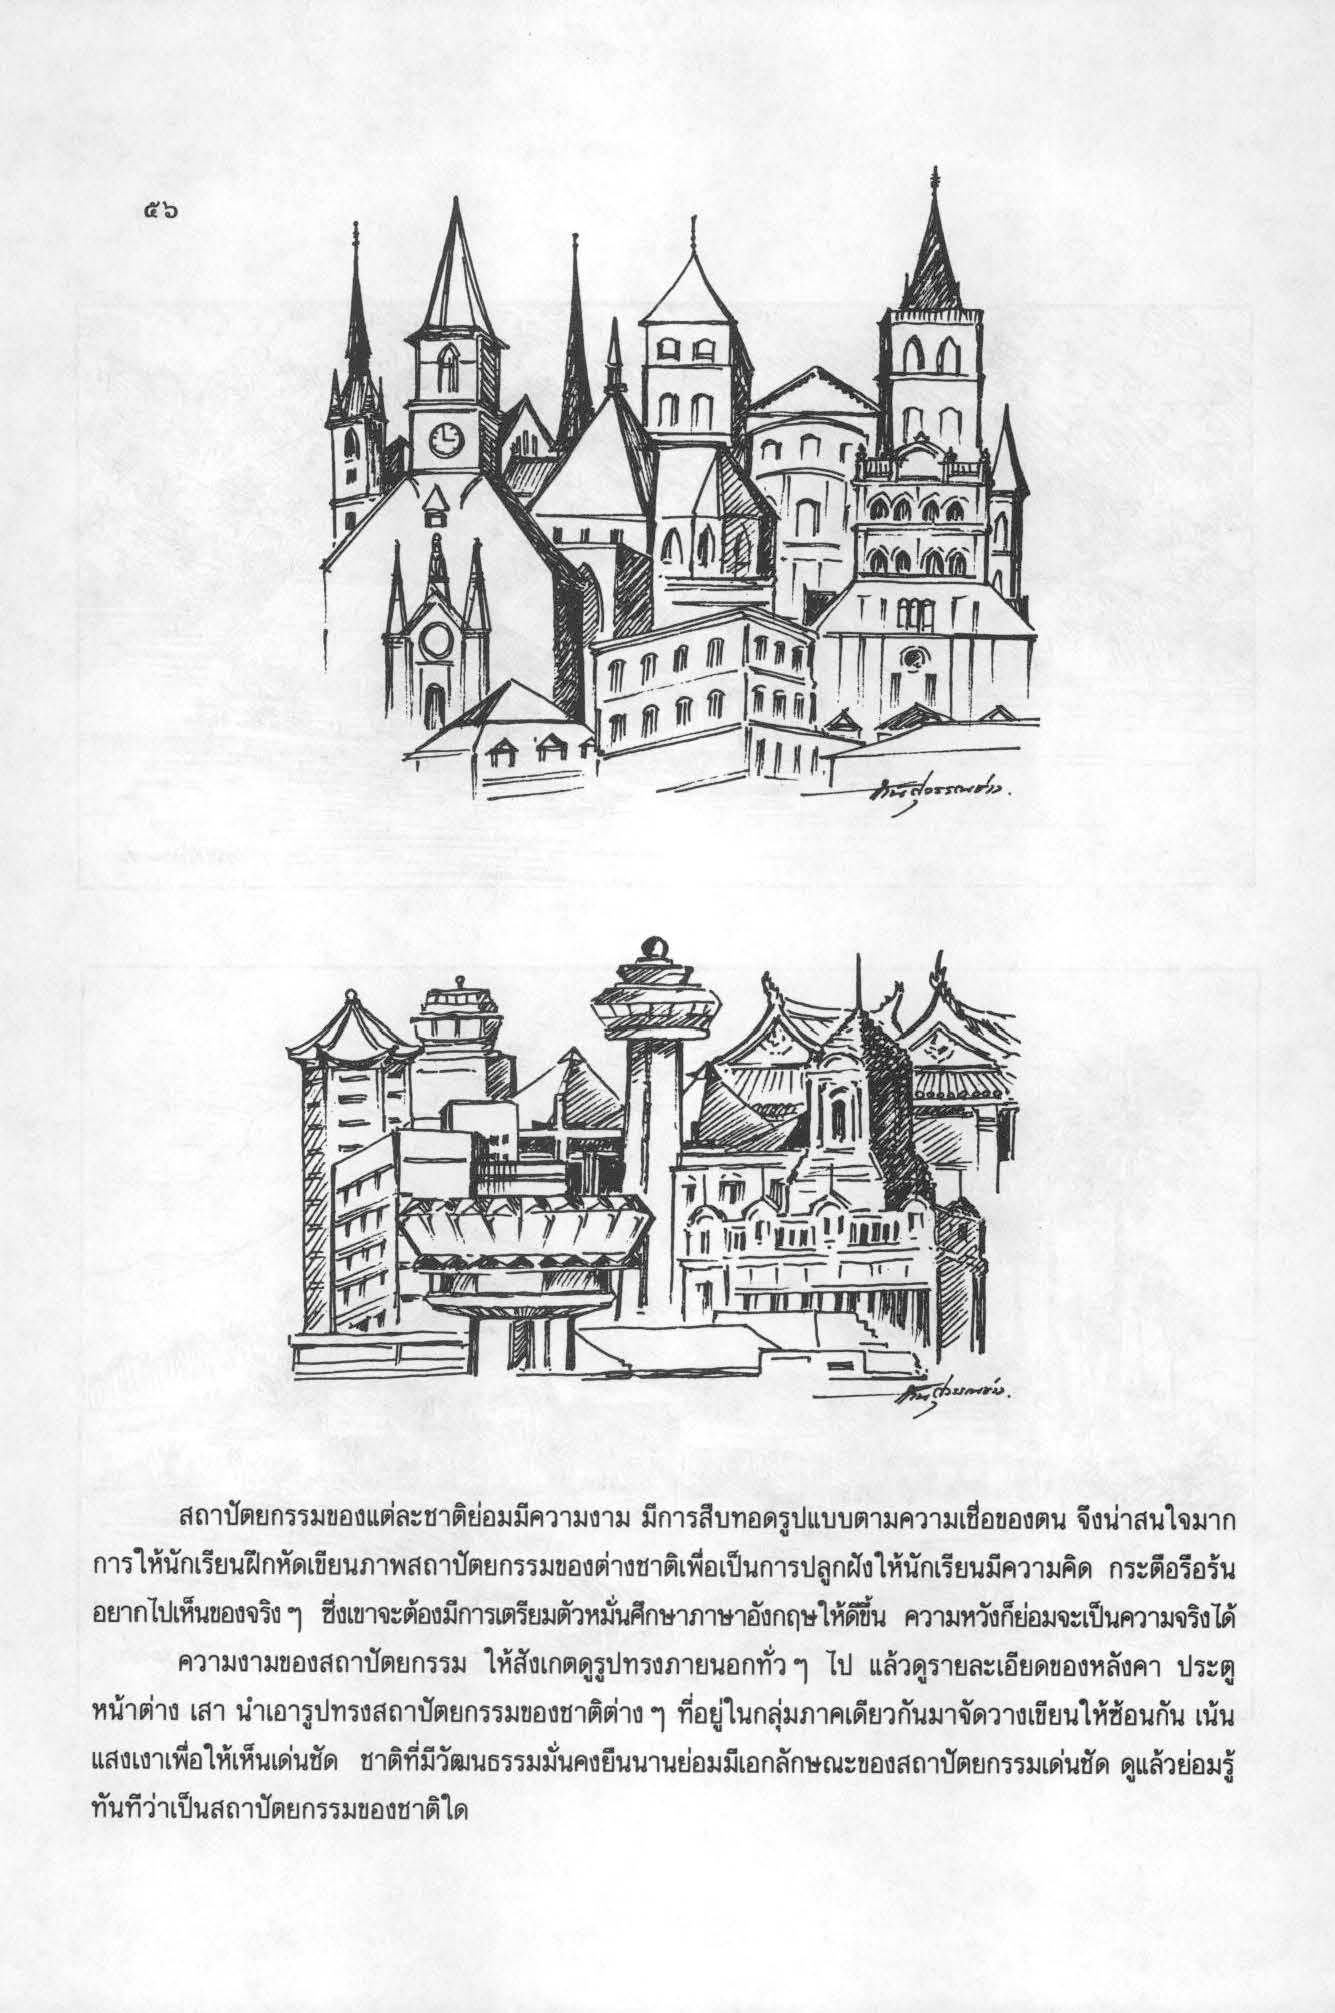 ๕๖
สถาปัตยกรรมของแต่ละชาติย่อมมีความงาม มีการสืบทอดรูปแบบตามความเชื่อของตน จึงน่าสนใจมาก
การให้นักเรียนฝึกหัดเขียนภาพสถาปัตยกรรมของต่างชาติเพื่อเป็นการปลูกฝังให้นักเรียนมีความคิด กระตือรือร้น
อยากไปเห็นของจริง ๆ ซึ่งเขาจะต้องมีการเตรียมตัวหมั่นศึกษาภาษาอังกฤษให้ดีขึ้น ความหวังก็ย่อมจะเป็นความจริงได้
ความงามของสถาปัตยกรรม ให้สังเกตดูรูปทรงภายนอกทั่ว ๆ ไป แล้วดูรายละเอียดของหลังคา ประตู
หน้าต่าง เสา นำเอารูปทรงสถาปัตยกรรมของชาติต่าง ๆ ที่อยู่ในกลุ่มภาคเดียวกันมาจัดวางเขียนให้ซ้อนกัน เน้น
แสงเงาเพื่อให้เห็นเด่นชัด ชาติที่มีวัฒนธรรมมั่นคงยืนนานย่อมมีเอกลักษณะของสถาปัตยกรรมเด่นชัด ดูแล้วย่อมรู้
ทันทีว่าเป็นสถาปัตยกรรมของชาติใด